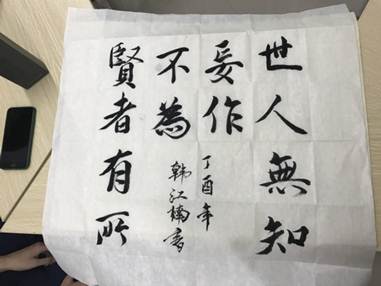 世人無知
妄作
丁酉年
賢者有所
不為
韩江楠書